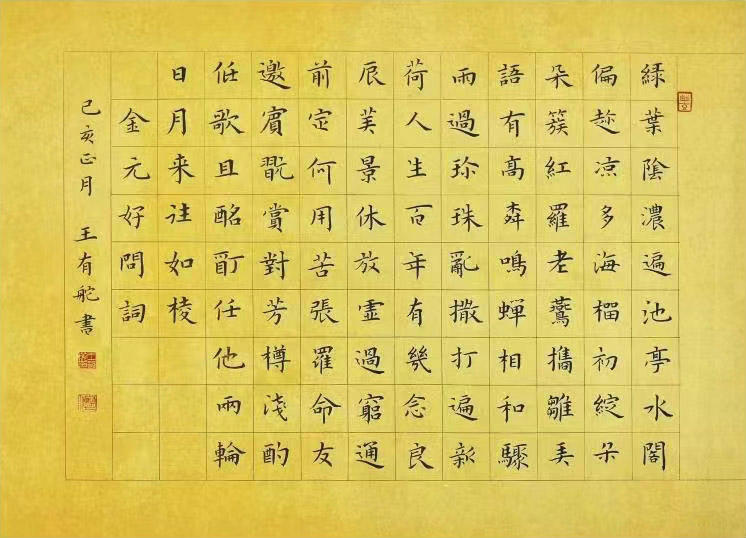 緑葉陰濃遍池亭水閣
偏趁凉多海榴初綻朵
朵簇紅羅老鷰攜雛弄
語有高鳴蝉相和驟
雨過珎珠亂撒打遍新
荷人生百年有幾念良
辰美景休放虛過窮通
前定何用苦張羅命友
邀賓翫賞對芳樽淺酌
低歌且酩酊任他兩輪
日月来往如梭
金元好問詞
己亥正月 王有舵書